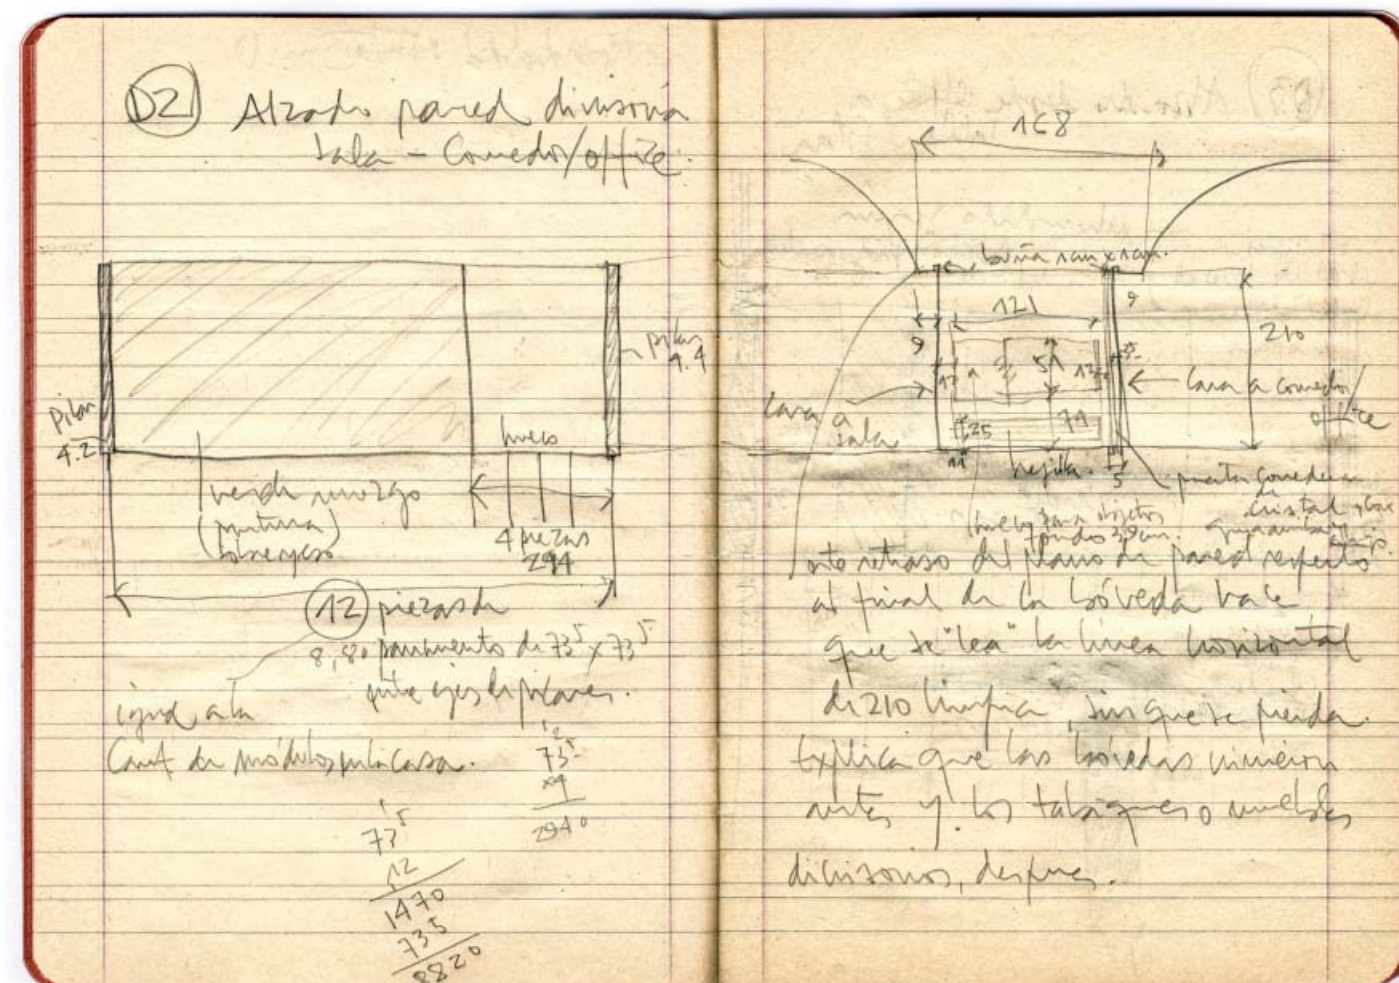 D2 Alzado pared divisoria
Sala - Comedor/office.
Pilar
4.2
pilar
4.4
hueco
verde musgo
(pintura
sobre yeso)
4 piezas
294
12 piezas de
8,80 pavimento de 73⁵ x 73⁵
entre ejes de pilares.
igual a la
Cant. de módulos en la casa.
73⁵
x4
2940
73⁵
12
1470
735
8820
168
buña 1cm x 1cm.
121
9
9
210
51
12
Cara a
sala
Cara a comedor/
office
25
71
11
rejilla
5
puerta corredera
de
cristal
(hueco para objetos
fondo 39cm.
este retraso del plano de pared respecto
al final de la bóveda hace
que se "lea" la línea horizontal
de 210 limpia, sin que se pierda.
Explica que las bóvedas vinieron
antes y los tabiques o muebles
divisorios, despues.